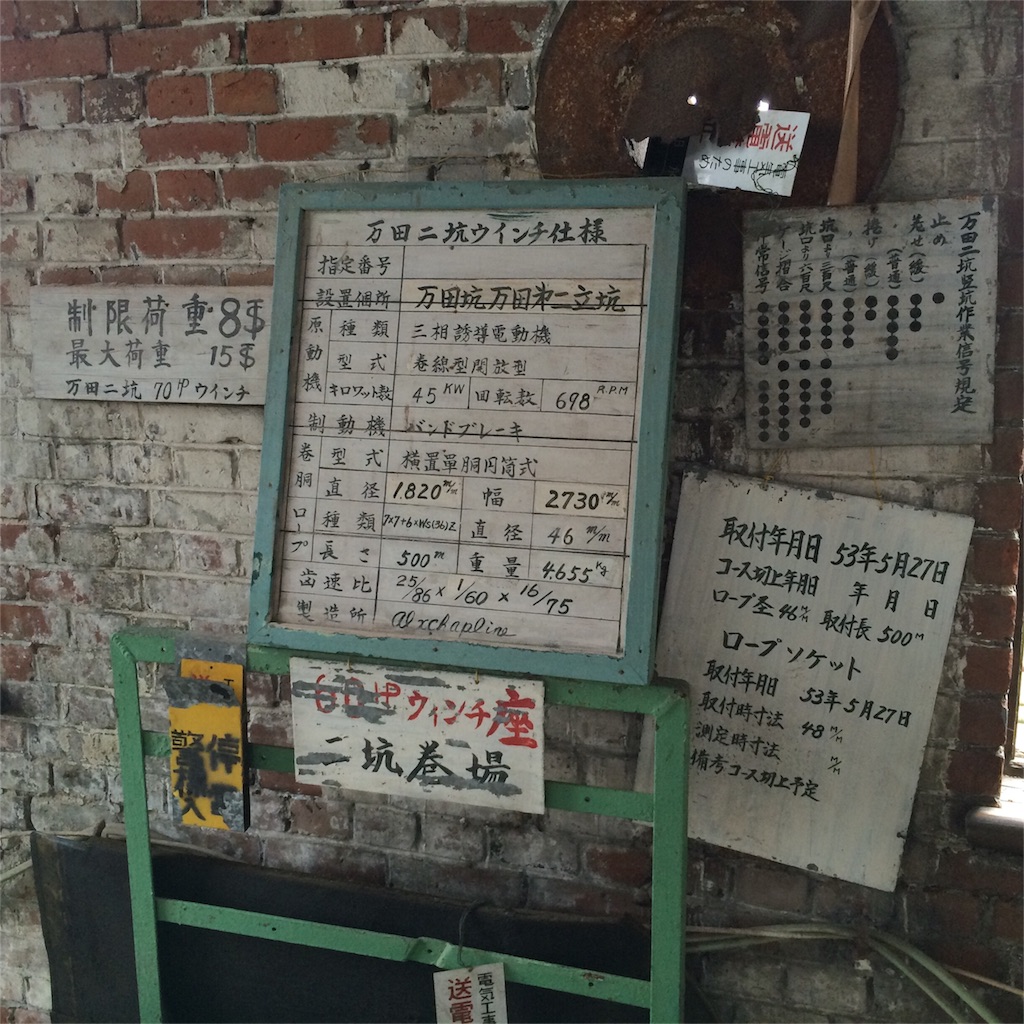 制限荷重 8T
最大荷重 15T
万田二坑 70HP ウインチ
万田二坑ウインチ仕様
指定番号
設置個所 万田坑万田第二立坑
原動機 種類 三相誘導電動機
型式 巻線型開放型
キロワット数 45 KW 回転数 698 R.P.M
制動機 バンドブレーキ
巻胴 型式 横置單胴円筒式
直径 1.820 m/m 幅 2730 m/m
ロープ 種類 7×7+6×WS(36)Z 直径 46 m/m
長さ 500m 重量 4.655 Kg
歯速比 25/86 × 1/60 × 16/75
製造所
万田二坑竪坑作業信号規定
止め
巻ケ (緩)
(普通)
(普通)
坑口より三百尺
坑口より六百尺
ケージ摺合
非常信号
取付年月日 53年5月27日
コース切上年月日 年 月 日
ロープ圣 46m/m 取付長 500m
ロープソケット
取付年月日 53年5月27日
取付時寸法 48 m/m
測定時寸法 m/m
備考コース切上予定
ウィンチ座
二坑巻場
停
警
送電
電気工事のため
電気工事
送電